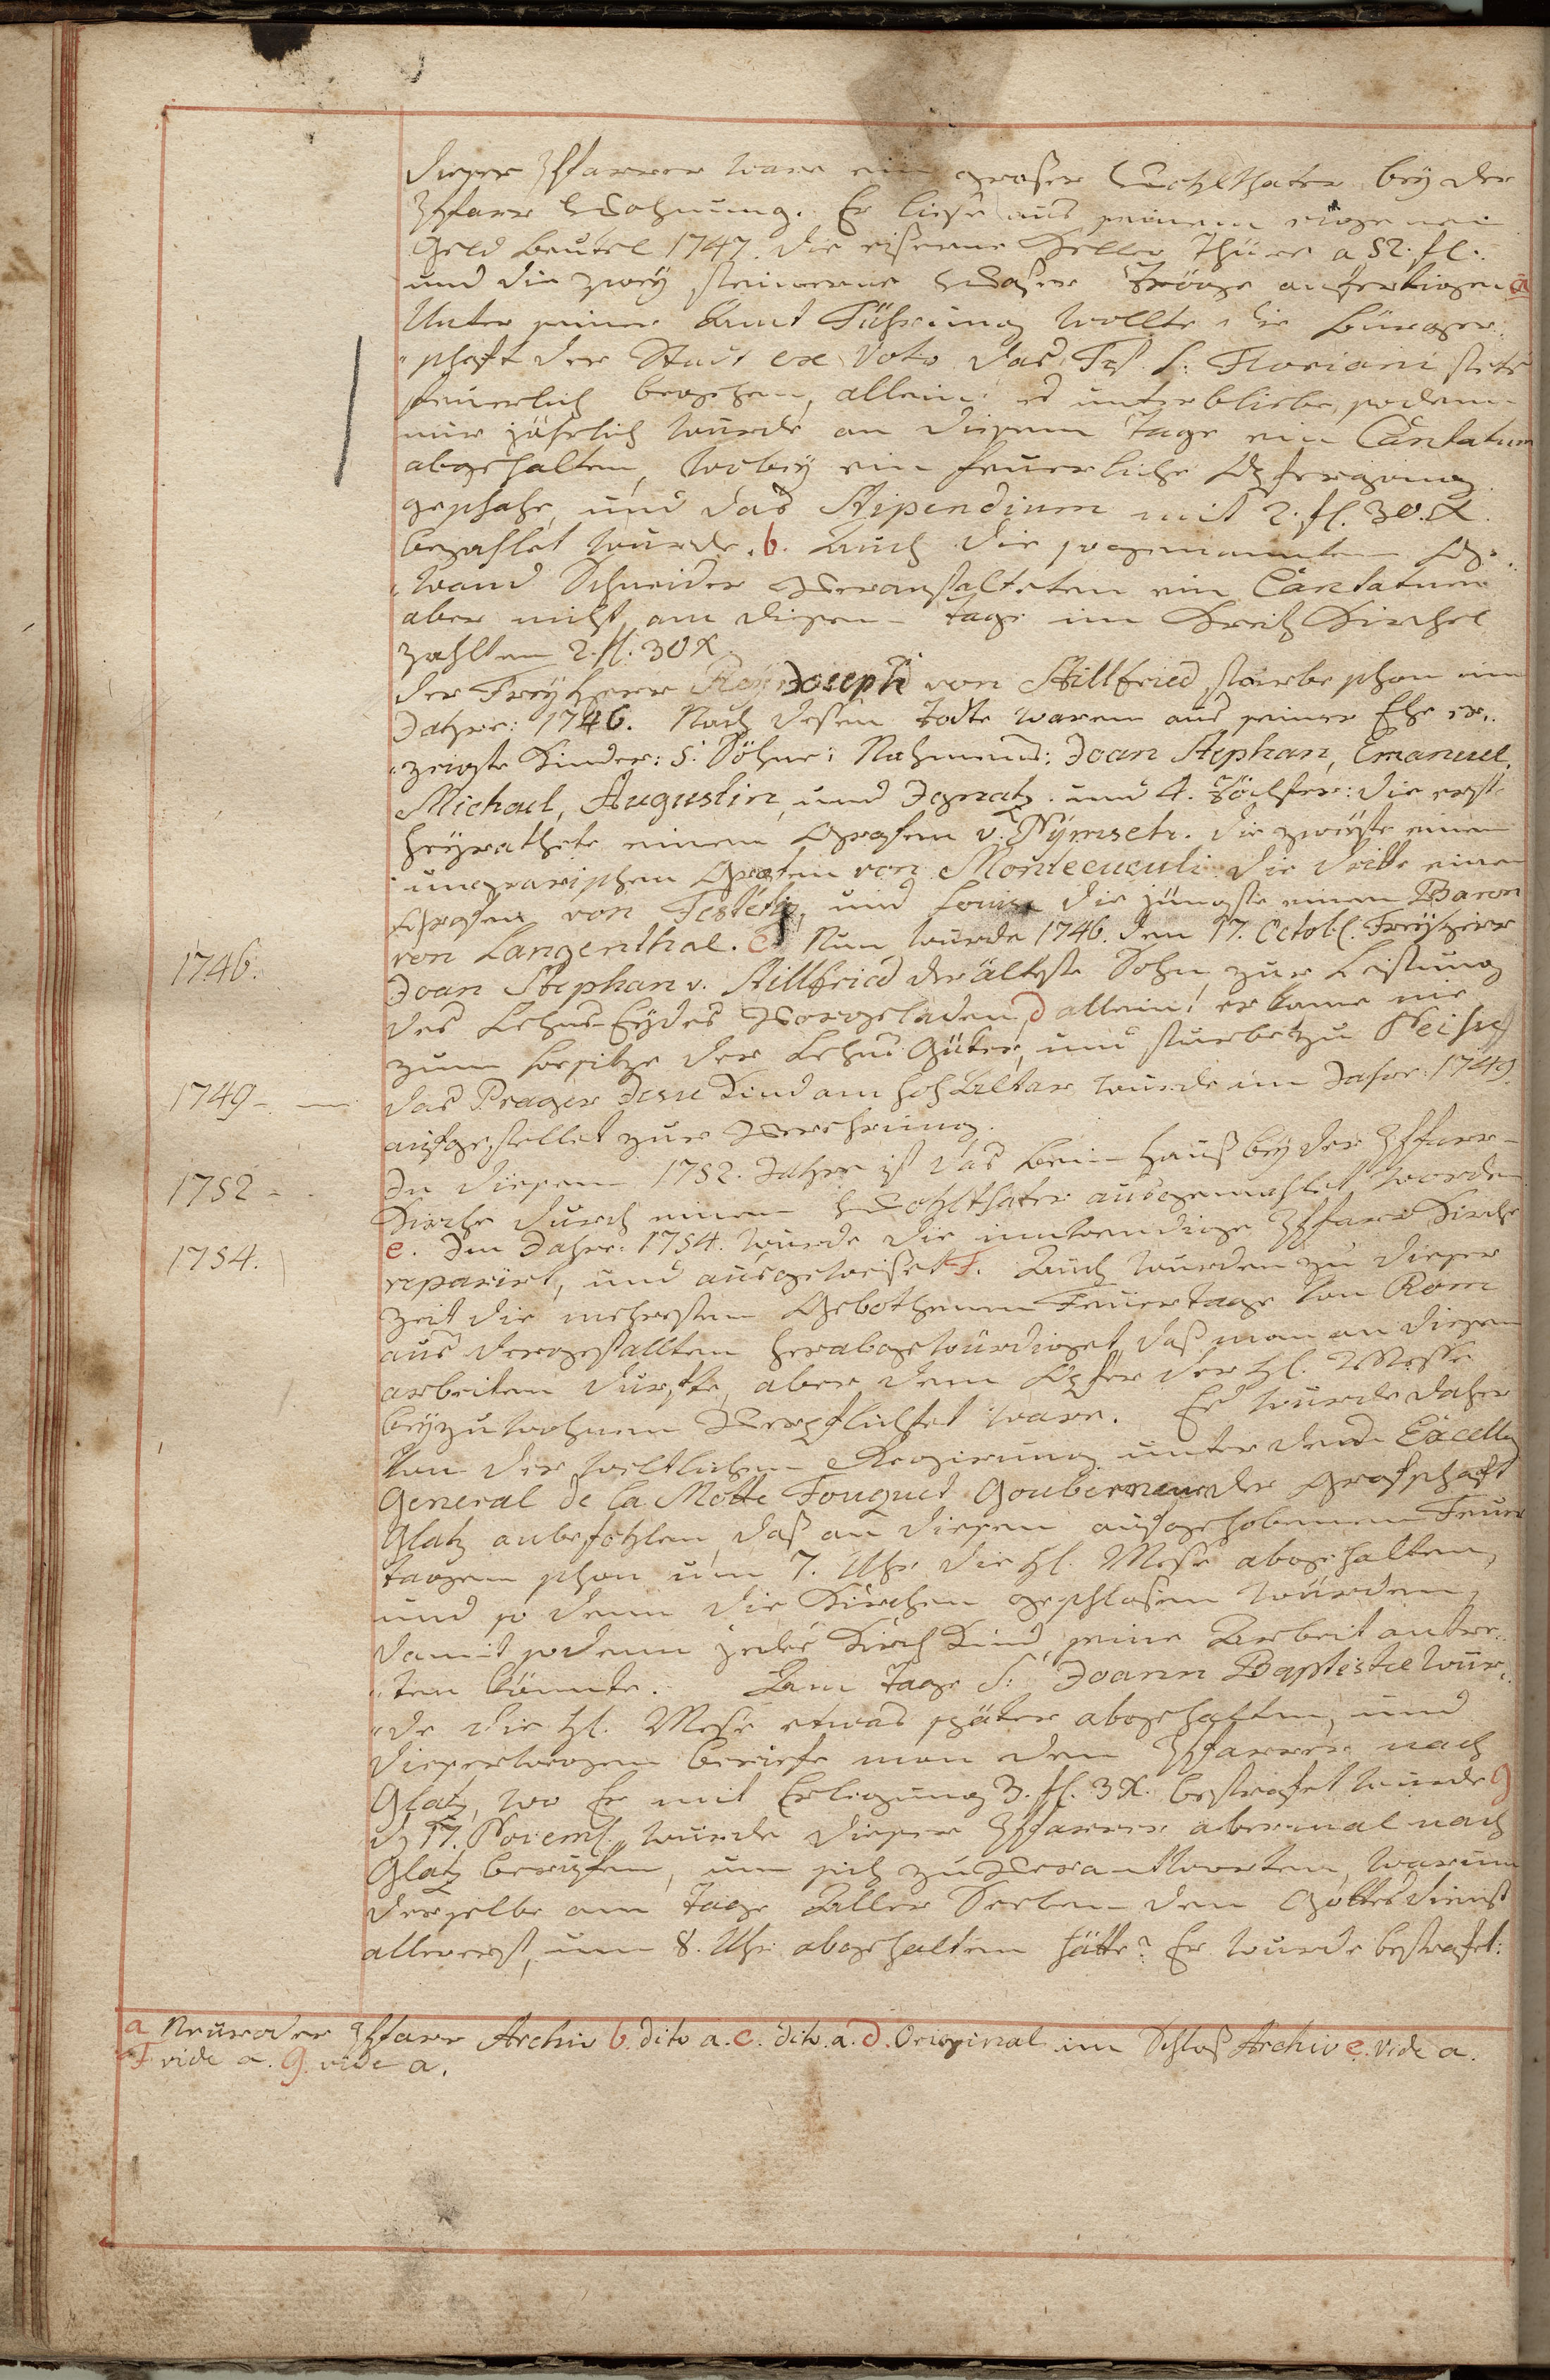 dieser Pfarrer ware ein großer Wohlthater bey der
Pfarr Wohnung. Er liese aus seinem eigenen
Geld beutel 1747. die eiserne Keller Thüre a 52. fl.
und die zwey steinerne Waßer Tröge anfertigen a
Unter seiner Amt Führung wollte die Bürger„
„schaft der Stadt ex Voto das Fest S: Floriani stets
feuerlich begehen, allein: es unterbliebe, sodenn
nur jährlich wurde an diesem Tage ein Cantatum
abgehalten, wobey ein feuerliche Opfergang
geschahe, und das Stipendium mit 2. fl. 30. x.
bezahlet wurde. b. Auch die sogenannten Ge„
„wand Schneider veranstalteten ein Cantatum
aber nicht an diesen Tage im Kreitz Kirchel
zahlten 2. fl. 30 x.
der Freyherr Joseph von Stillfried, starbe schon im
Jahre: 1746. Nach desen Todte waren aus seiner Ehe er„
„zeigte Kinder: 5. Söhne: Nahmens: Joan Stephan, Emanuel,
Michael, Augustin, und Ignatz. und 4. Töchter: die erste
heyrathete einem Grafen v. Nymsch. die zweyte einen
ungrarischen Grafen von Montecuculi die dritte einen
Grafen von Festetiz, und Louise die jüngste einen Baron
von Langenthal. c Nun wurde 1746. den 17. Octob: Freyherr
1746.
Joan Stephan v. Stillfried der älteste Sohn zur Leistung
des Lehns-Eydes vorgeladen, d allein: er kame nie
zum besitze der Lehns Güter, und sturbe zu Neisse
1749 -
das Prager Jesu Kind am hoh Altar wurde im Jahre 1749.
aufgestellet zur Verehrung.
1752 -
In diesem 1752. Jahre ist das bein Hauß bey der Pfarr-
Kirche durch einen Wohlthater ausgemahlet worden
e. Im Jahre: 1754. wurde die inwendige Pfarr Kirche
1754.
reparirt, und ausgeweiset F. Auch wurden zu dieser
Zeit die mehresten Gebothenen Feuertage von Rom
aus dergestallten herabgewürdiget, daß man an diesen
arbeiten durfte, aber dem Opfer der hl. Messe
beyzuwohnen verpflichtet ware. Es wurde daher
von der weltlichen Regierung unter dend Excellz
General de la Motte Fouquet Gouberneur der Grafschaft
Glatz anbefohlen, daß an diesen aufgehobenen Feuer
tagen schon um 7. Uhr die hl. Mese abgehalten,
und so denn die Kirchen geschlosen würden,
damit sodenn jedes Kirch Kind seine Arbeit antre„
„ten könnte. Am Tage S: Joann Baptistae wur„
„de die hl. Mese etwas später abgehalten, und
dieserwegen beriefe man den Pfarrer nach
Glatz, wo Er mit Erlegung 3. fl. 3 x. bestrafet wurde g
d. 17. Novemb. wurde dieser Pfarrer abermal nach
Glatz berufen, um sich zu verantworten, warum
derselbe am Tage Aller Seelen den Gottesdienst
allererst, um 8. Uhr abgehalten hätte? Er wurde bestrafet:
a Neuroder Pfarr Archiv b. dito a. c. dito. a. d. Original im Schloß Archiv e. vide a.
F vide a. g. vide a.